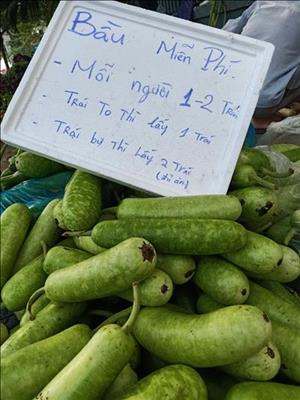 Bầu Miễn Phí.
- Mỗi người 1-2 Trái
- Trái To Thì lấy 1 Trái
- Trái bự Thì Lấy 2 Trái
(đủ ăn)